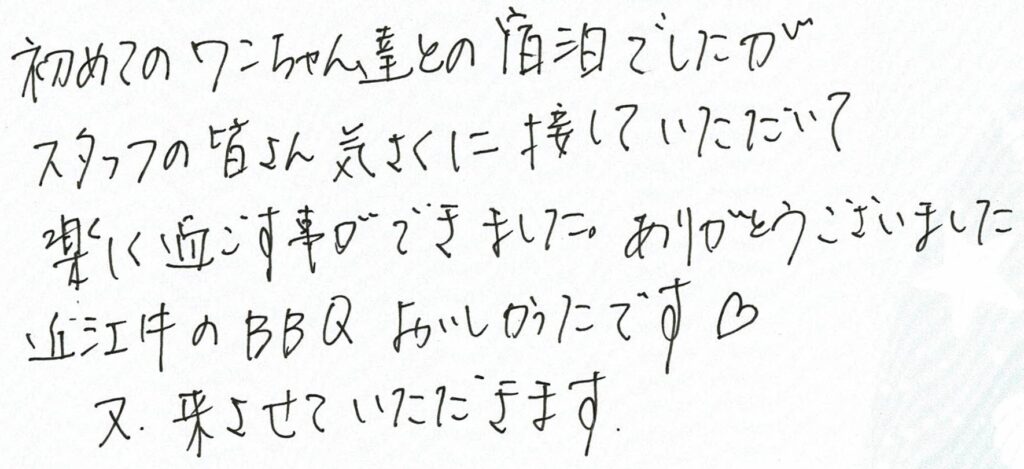 初めてのワンちゃん達との宿泊でしたが
スタッフの皆さん気さくに接していただいて
楽しく過ごす事ができました。ありがとうございました
近江牛のBBQおいしかったです♡
又.来させていただきます.